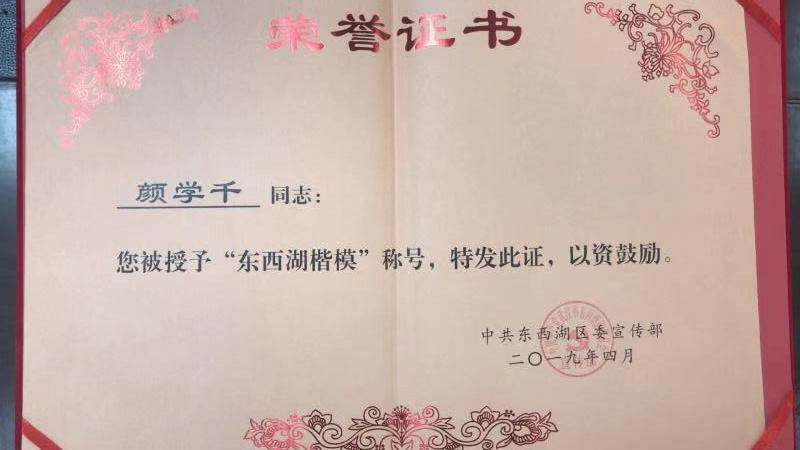 荣誉证书
颜学千 同志：
您被授予“东西湖楷模”称号，特发此证，以资鼓励。
中共东西湖区委宣传部
二〇一九年四月
宣传部